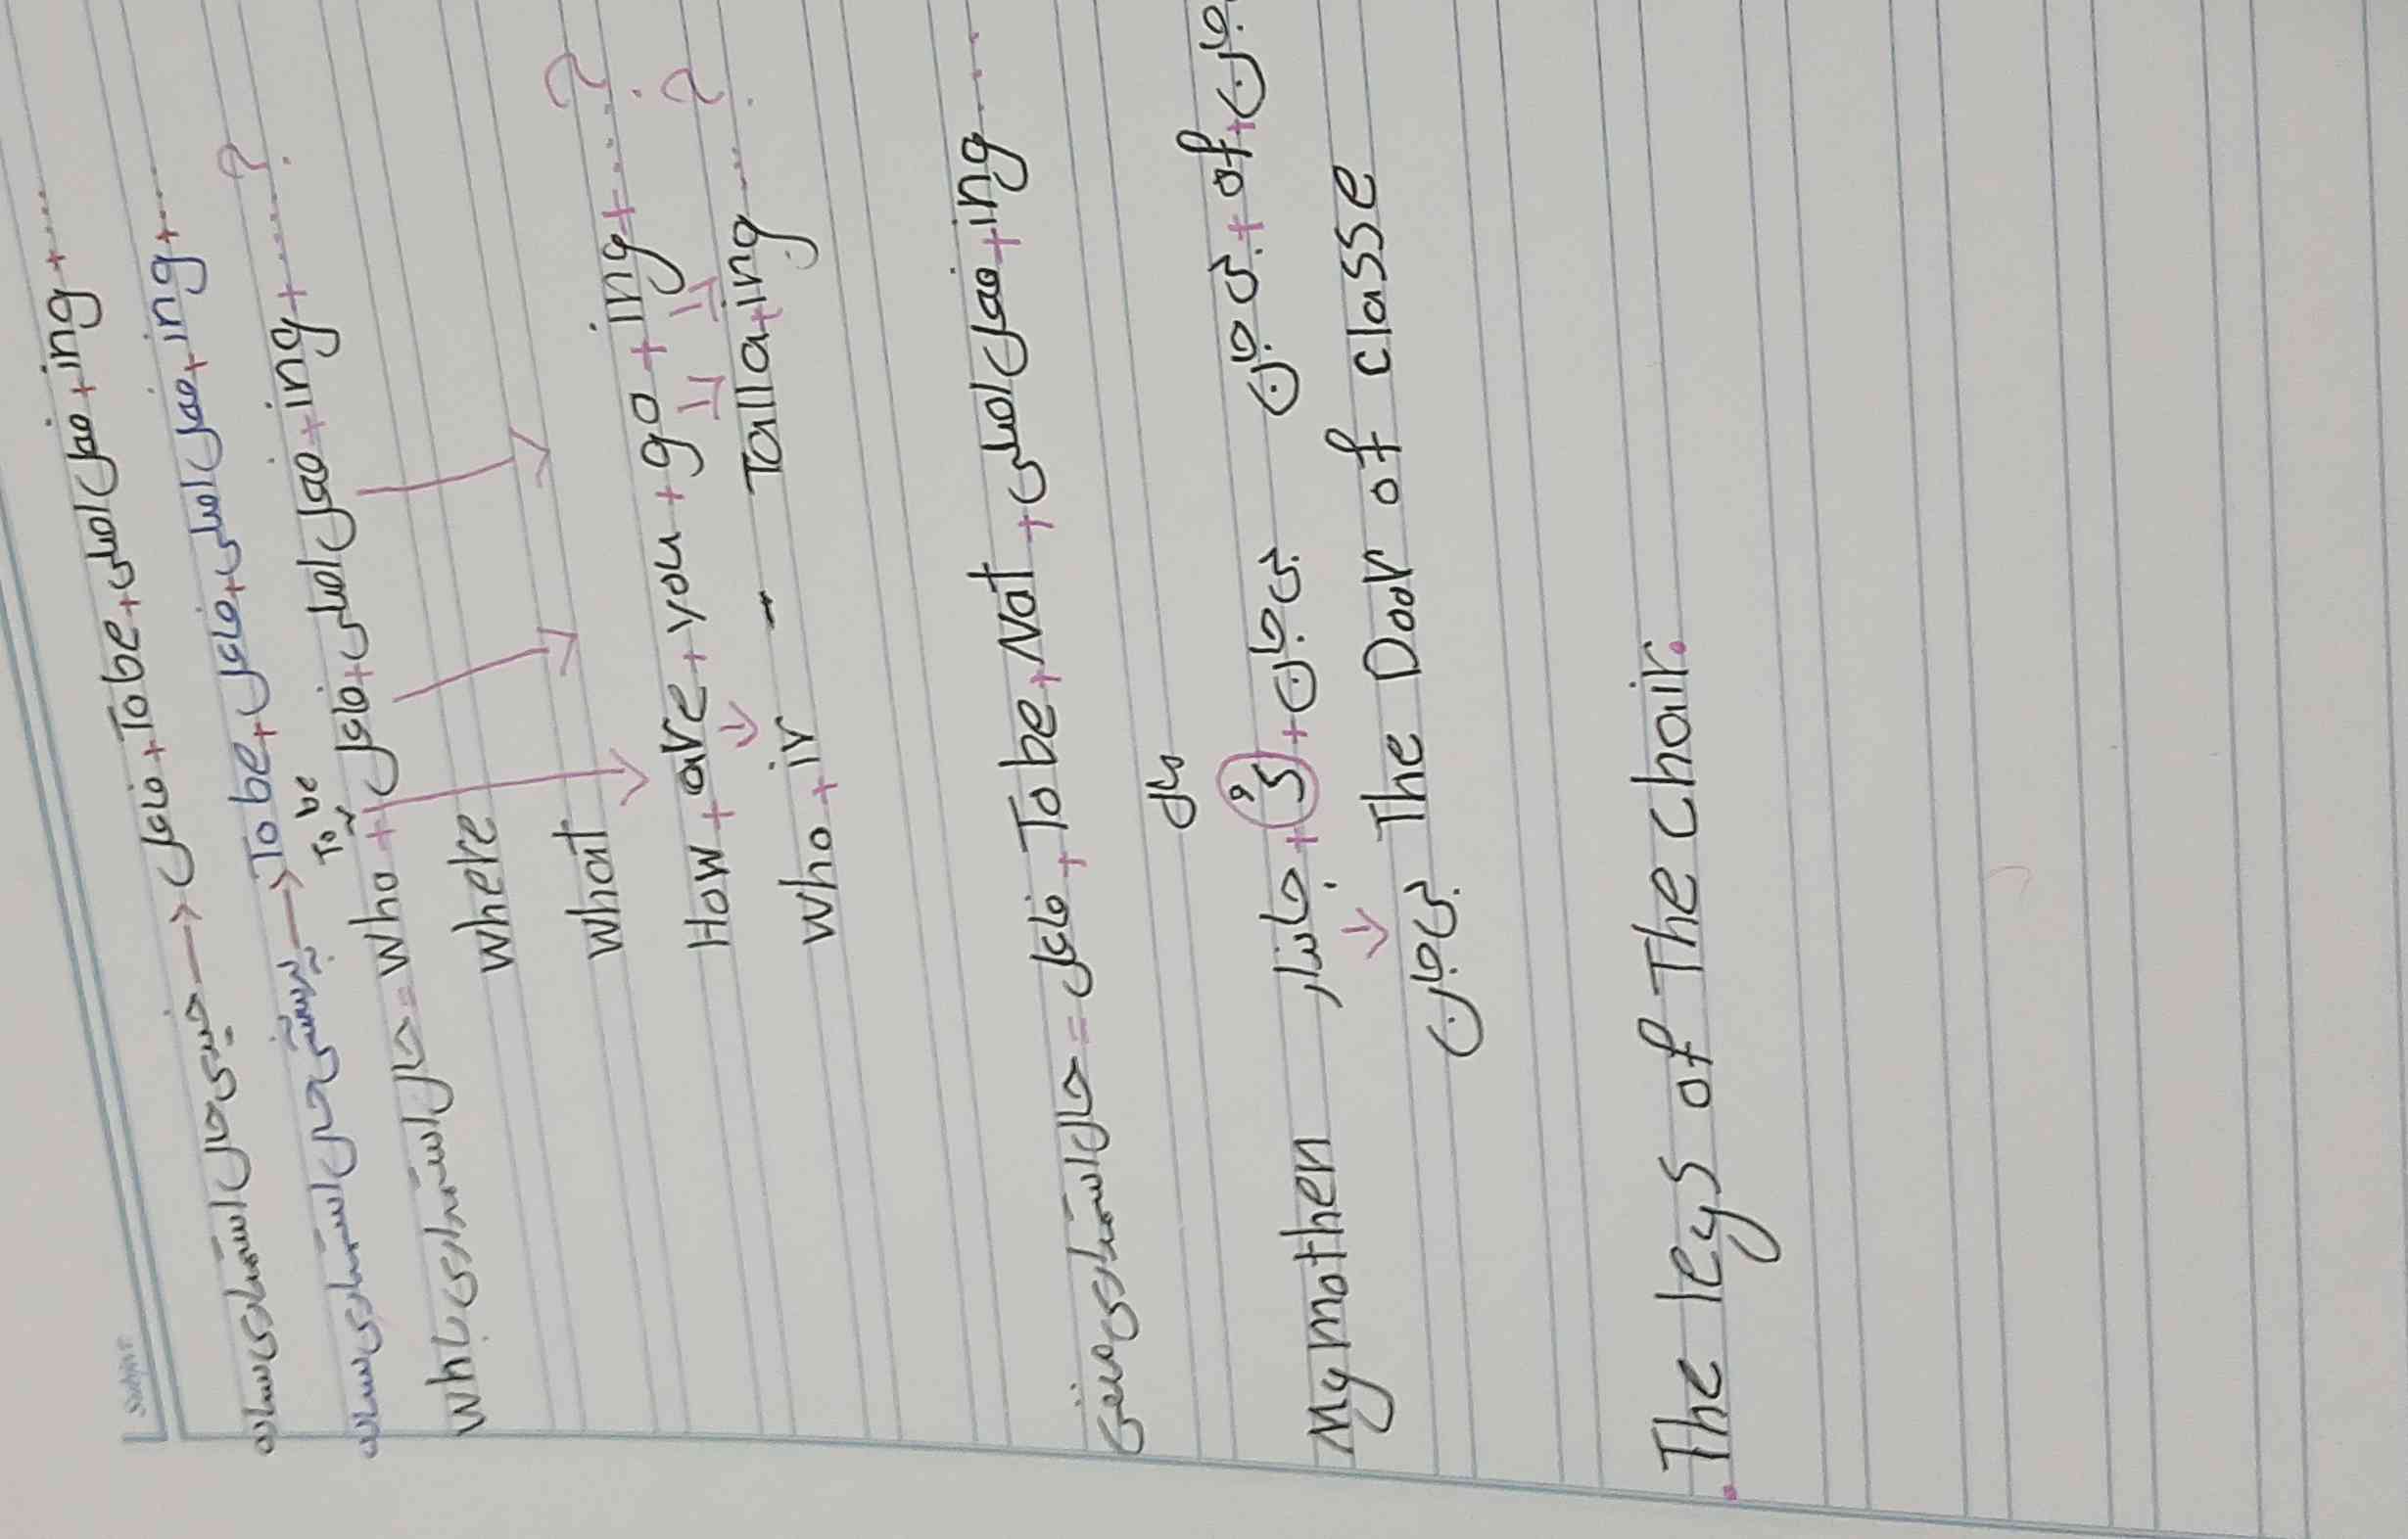 ساده حال استمراری خبری → فاعل + To be + فعل اصلی + ing + ....
ساده حال استمراری پرسشی → To be + فاعل + فعل اصلی + ing + ....?
To be
حال استمراری با Wh = Who + فاعل + فعل اصلی + ing + ....?
where
what
How + are + you + go + ing + ....?
who + ir - Talla + ing ....?
حال استمراری منفی = فاعل + To be + Not + فعل اصلی + ing ....
مال
My mothen جاندار + s' + بی جان بی جان + of + جان
بی جان The Door of classe
. The legs of The chair.